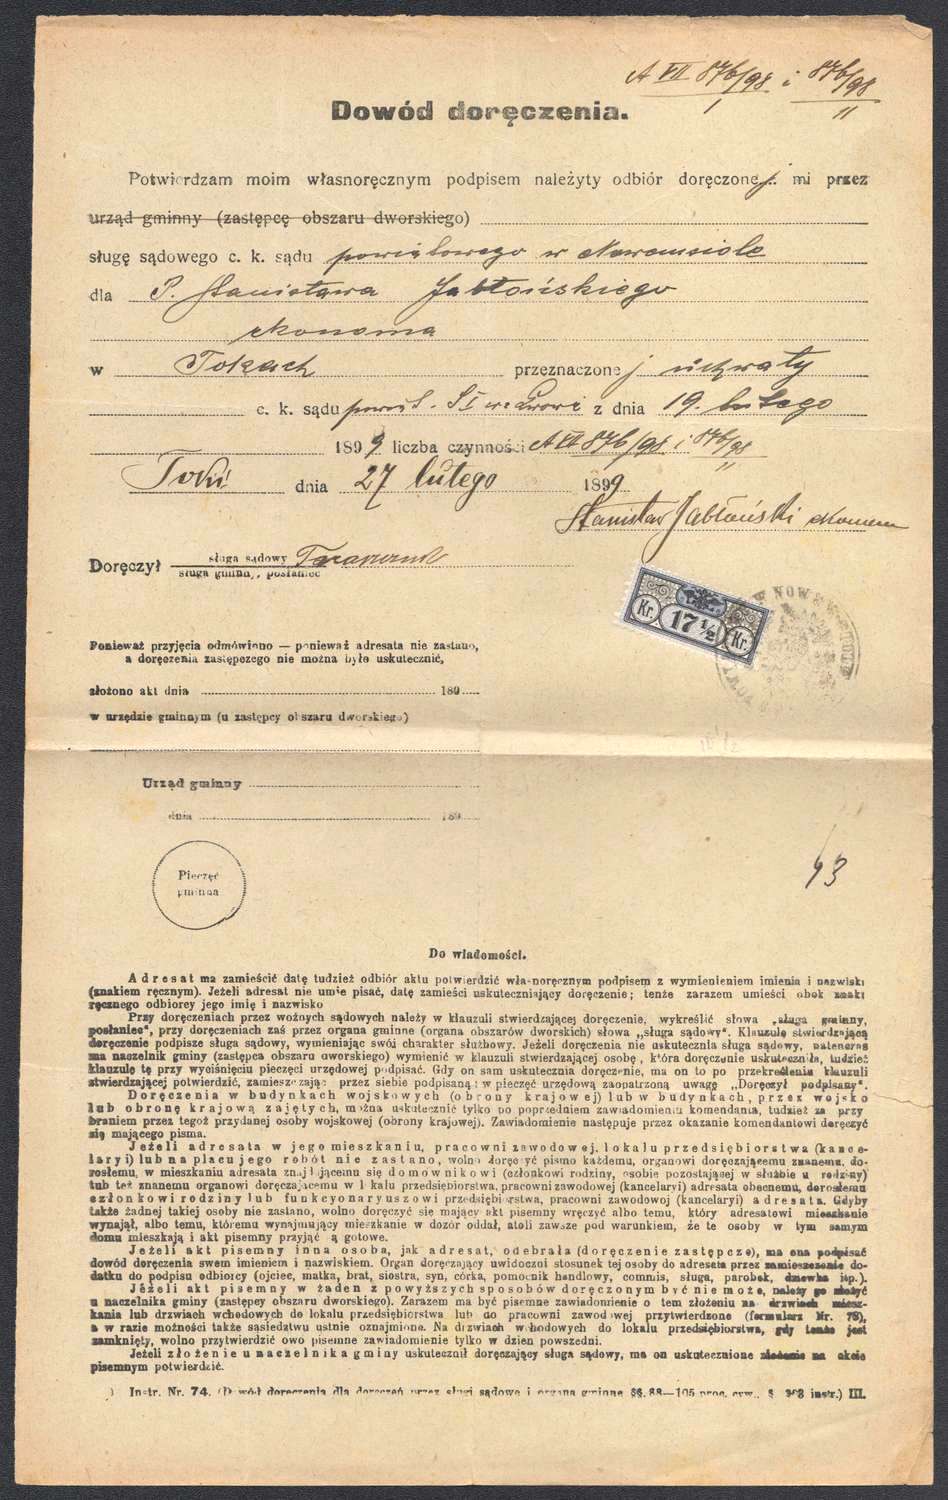 A VII 876/98 i 876/98
I II
Dowód doręczenia.
Potwierdzam moim własnoręcznym podpisem należyty odbiór doręczonej mi przez
urząd gminny (zastępcę obszaru dworskiego)
sługę sądowego c. k. sądu powiatowego w Nowemsiole
dla P. Stanisława Jabłońskiego
ekonoma
w Tokach przeznaczonej uchwały
c. k. sądu powiat. S I we Lwowie z dnia 19. lutego
1899 liczba czynności A VII 876/98 i 876/98
II
Toki dnia 27 lutego 1899
Stanisław Jabłoński ekonom
Doręczył sługa sądowy
sługa gminny, posłaniec
Kr. 17 1/2 Kr.
Ponieważ przyjęcia odmówiono — ponieważ adresata nie zastano,
a doręczenia zastępczego nie można było uskutecznić,
złożono akt dnia 189
w urzędzie gminnym (u zastępcy obszaru dworskiego)
Urząd gminny
dnia 189
Pieczęć
gminna
43
Do wiadomości.
Adresat ma zamieścić datę tudzież odbiór aktu potwierdzić własnoręcznym podpisem z wymienieniem imienia i nazwisk
(znakiem ręcznym). Jeżeli adresat nie umie pisać, datę zamieści uskuteczniający doręczenie; tenże zarazem umieści obok znaku
ręcznego odbiorcy jego imię i nazwisko
Przy doręczeniach przez woźnych sądowych należy w klauzuli stwierdzającej doręczenie, wykreślić słowa „sługa gminny,
posłaniec“, przy doręczeniach zaś przez organa gminne (organa obszarów dworskich) słowa „sługa sądowy“. Klauzulę stwierdzającą
doręczenie podpisze sługa sądowy, wymieniając swój charakter służbowy. Jeżeli doręczenia nie uskutecznia sługa sądowy, natenczas
ma naczelnik gminy (zastępca obszaru dworskiego) wymienić w klauzuli stwierdzającej osobę, która doręczenie uskuteczniła, tudzież
klauzulę tę przy wyciśnięciu pieczęci urzędowej podpisać. Gdy on sam uskutecznia doręczenie, ma on to po przekreśleniu klauzuli
stwierdzającej potwierdzić, zamieszczając przez siebie podpisaną i w pieczęć urzędową zaopatrzoną uwagę „Doręczył podpisany“.
Doręczenia w budynkach wojskowych (obrony krajowej) lub w budynkach, przez wojsko
lub obronę krajową zajętych, można uskutecznić tylko po poprzedniem zawiadomieniu komendanta, tudzież za przy
braniem przez tegoż przydanej osoby wojskowej (obrony krajowej). Zawiadomienie następuje przez okazanie komendantowi doręczyć
się mającego pisma.
Jeżeli adresata w jego mieszkaniu, pracowni zawodowej, lokalu przedsiębiorstwa (kance-
laryi) lub na placu jego robót nie zastano, wolno doręczyć pismo każdemu, organowi doręczającemu znanemu, do-
rosłemu, w mieszkaniu adresata znajdującemu się domownikowi (członkowi rodziny, osobie pozostającej w służbie u rodziny)
lub też znanemu organowi doręczającemu w lokalu przedsiębiorstwa, pracowni zawodowej (kancelaryi) adresata obecnemu, dorosłemu
członkowi rodziny lub funkcyonaryuszowi przedsiębiorstwa, pracowni zawodowoj (kancelaryi) adresata. Gdyby
także żadnej takiej osoby nie zastano, wolno doręczyć się mający akt pisemny wręczyć albo temu, który adresatowi mieszkanie
wynajął, albo temu, któremu wynajmujący mieszkanie w dozór oddał, atoli zawsze pod warunkiem, że te osoby w tym samym
domu mieszkają i akt pisemny przyjąć są gotowe.
Jeżeli akt pisemny inna osoba, jak adresat, odebrała (doręczenie zastępcze), ma ona podpisać
dowód doręczenia swem imieniem i nazwiskiem. Organ doręczający uwidoczni stosunek tej osoby do adresata przez zamieszczenie do-
datku do podpisu odbiorcy (ojciec, matka, brat, siostra, syn, córka, pomocnik handlowy, commis, sługa, parobek, dziewka itp.).
Jeżeli akt pisemny w żaden z powyższych sposobów doręczonym być nie może, należy go złożyć
u naczelnika gminy (zastępcy obszaru dworskiego). Zarazem ma być pisemne zawiadomienie o tem złożeniu na drzwiach miesz-
kania lub drzwiach wchodowych do lokalu przedsiębiorstwa lub do pracowni zawodowej przytwierdzone (formularz Nr. 75),
a w razie możności także sąsiedztwu ustnie oznajmione. Na drzwiach wchodowych do lokalu przedsiębiorstwa, gdy tenże jest
zamknięty, wolno przytwierdzić owo pisemne zawiadomienie tylko w dzien powszedni.
Jeżeli złożenie u naczelnika gminy uskutecznił doręczający sługa sądowy, ma on uskutecznione złożenie na akcie
pisemnym potwierdzić.
) Instr. Nr. 74. (Dowód doręczenia dla doręczeń przez sługi sądowe i organa gminne §§. 88—105 proc. cyw., § 303 instr.) III.